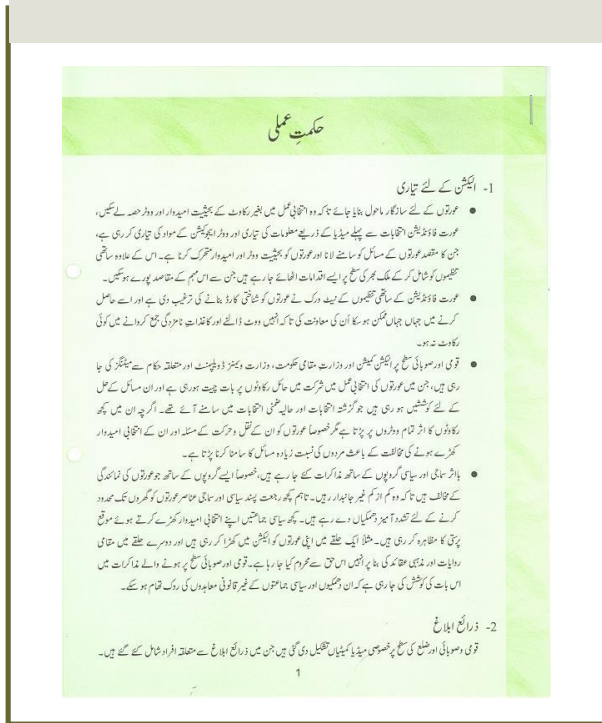 حکمتِ عملی
1- الیکشن کے لئے تیاری
● عورتوں کے لئے سازگار ماحول بنایا جائے تاکہ وہ انتخابی عمل میں بغیر رکاوٹ کے بحیثیت امیدوار اور ووٹر حصہ لے سکیں،
عورت فاؤنڈیشن انتخابات سے پہلے میڈیا کے ذریعے معلومات کی تیاری اور ووٹر ایجوکیشن کے مواد کی تیاری کر رہی ہے،
جن کا مقصد عورتوں کے مسائل کو سامنے لانا اور عورتوں کو بحیثیت ووٹر اور امیدوار متحرک کرنا ہے۔ اس کے علاوہ ساتھی
تنظیموں کو شامل کر کے ملک بھر کی سطح پر ایسے اقدامات اٹھائے جا رہے ہیں جن سے اس مہم کے مقاصد پورے ہو سکیں۔
● عورت فاؤنڈیشن کے ساتھی تنظیموں کے نیٹ ورک نے عورتوں کو شناختی کارڈ بنانے کی ترغیب دی ہے اور اسے حاصل
کرنے میں جہاں جہاں ممکن ہو سکا اُن کی معاونت کی تاکہ انہیں ووٹ ڈالنے اور کاغذاتِ نامزدگی جمع کروانے میں کوئی
رکاوٹ نہ ہو۔
● قومی اور صوبائی سطح پر الیکشن کمیشن اور وزارتِ مقامی حکومت، وزارت ویمنز ڈویلپمنٹ اور متعلقہ حکام سے میٹنگز کی جا
رہی ہیں، جن میں عورتوں کی انتخابی عمل میں شرکت میں حائل رکاوٹوں پر بات چیت ہو رہی ہے اور ان مسائل کے حل
کے لئے کوششیں ہو رہی ہیں جو گزشتہ انتخابات اور حالیہ ضمنی انتخابات میں سامنے آئے تھے۔ اگرچہ ان میں کچھ
رکاوٹوں کا اثر تمام ووٹروں پر پڑتا ہے مگر خصوصاً عورتوں کو ان کے نقل و حرکت کے مسئلہ اور ان کے انتخابی امیدوار
کھڑے ہونے کی مخالفت کے باعث مردوں کی نسبت زیادہ مسائل کا سامنا کرنا پڑتا ہے۔
● بااثر سماجی اور سیاسی گروپوں کے ساتھ مذاکرات کئے جا رہے ہیں، خصوصاً ایسے گروپوں کے ساتھ جو عورتوں کی نمائندگی
کے مخالف ہیں تاکہ وہ کم از کم غیر جانبدار رہیں۔ تاہم کچھ رجعت پسند سیاسی اور سماجی عناصر عورتوں کو گھروں تک محدود
کرنے کے لئے تشدد آمیز دھمکیاں دے رہے ہیں۔ کچھ سیاسی جماعتیں اپنے انتخابی امیدوار کھڑے کرتے ہوئے موقع
پرستی کا مظاہرہ کر رہی ہیں۔ مثلاً ایک حلقے میں اپنی عورتوں کو الیکشن میں کھڑا کر رہی ہیں اور دوسرے حلقے میں مقامی
روایات اور مذہبی عقائد کی بنا پر انہیں اس حق سے محروم کیا جا رہا ہے۔ قومی اور صوبائی سطح پر ہونے والے مذاکرات میں
اس بات کی کوشش کی جا رہی ہے کہ ان دھمکیوں اور سیاسی جماعتوں کے غیر قانونی معاہدوں کی روک تھام ہو سکے۔
2- ذرائع ابلاغ
قومی و صوبائی اور ضلع کی سطح پر خصوصی میڈیا کمیٹیاں تشکیل دی گئی ہیں جن میں ذرائع ابلاغ سے متعلقہ افراد شامل کئے گئے ہیں۔
1